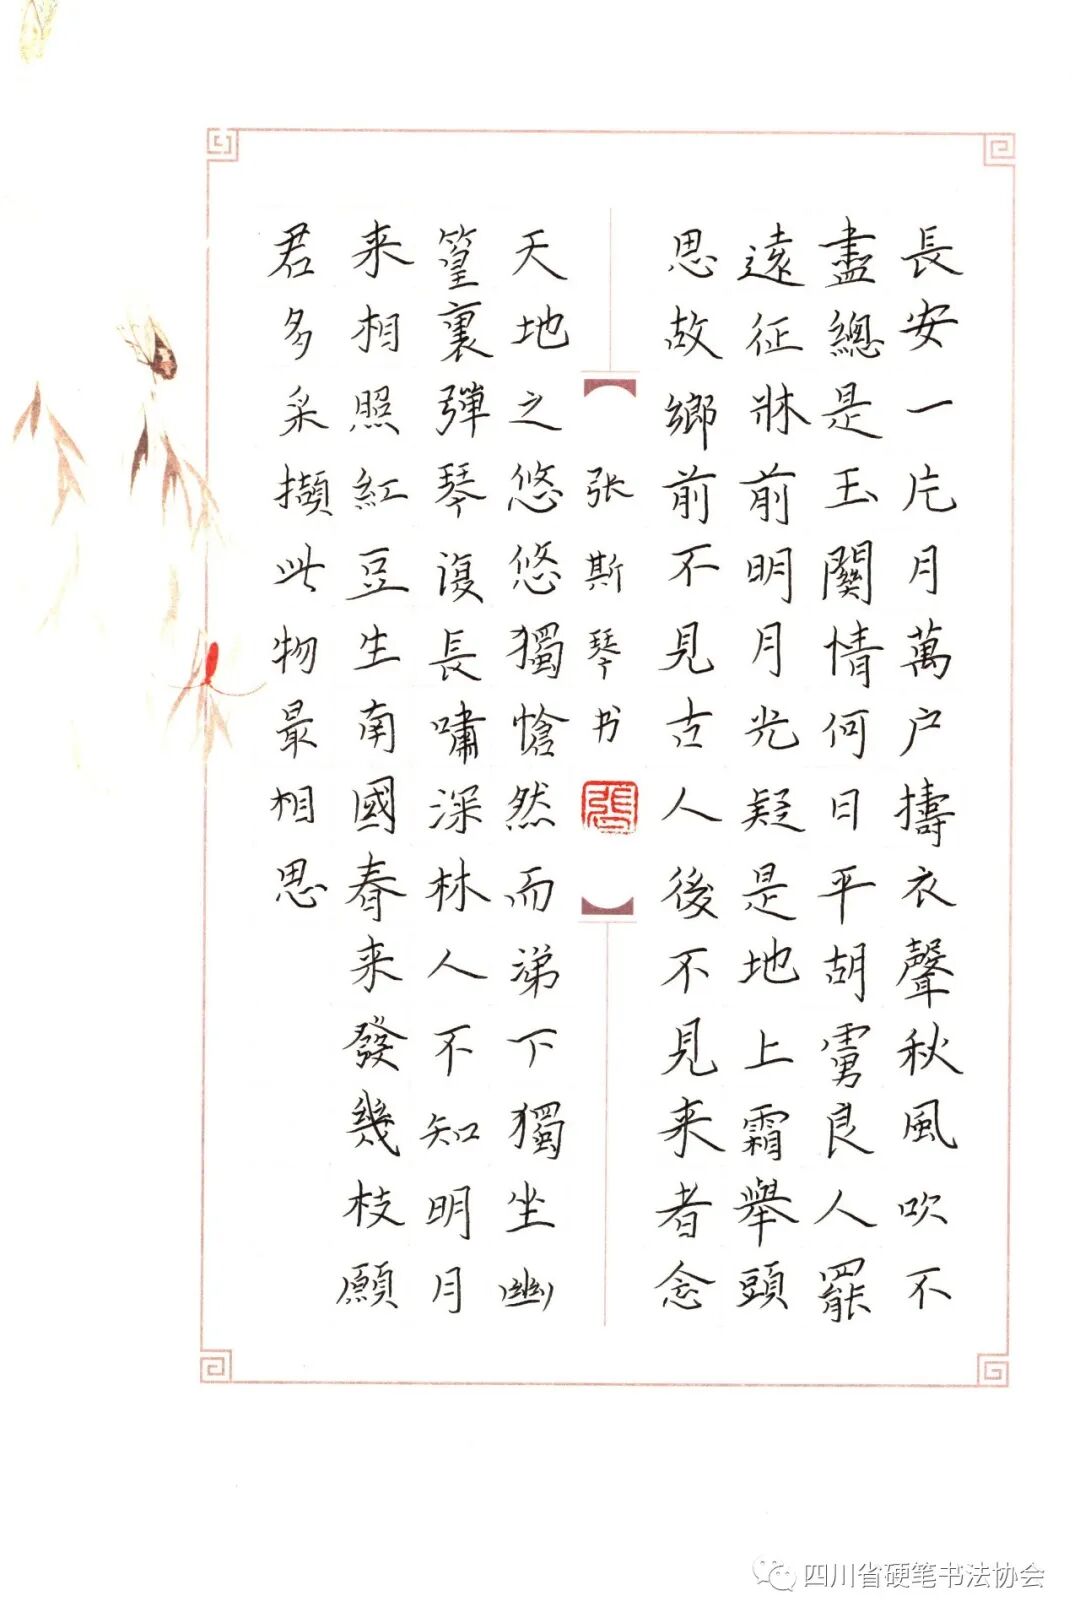 長安一片月萬户擣衣聲秋風吹不
盡總是玉關情何日平胡虜良人罷
遠征牀前明月光疑是地上霜舉頭
思故鄉前不見古人後不見来者念
张斯琴书
天地之悠悠獨愴然而涕下獨坐幽
篁裏彈琴復長嘯深林人不知明月
来相照紅豆生南國春来發幾枝願
君多采擷此物最相思
四川省硬笔书法协会